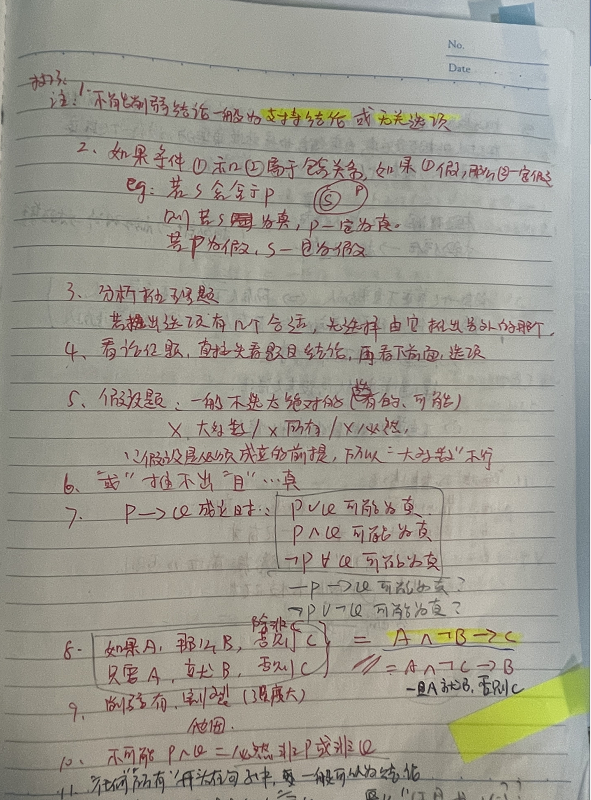 No.
Date
注: 1. 不能削弱结论一般为支持结论或无关选项
2、如果条件①和②属于包含关系, 如果①假, 那么②一定假
eg: 若S包含于P
S P
则若S为真, P一定为真.
若P为假, S一定为假
3、分析推理题
若推出选项有几个合适, 先选择由它推出另外的那个.
4、看论证题, 直接先看题目结论, 再看下前面, 选项
5、假设题: 一般不选太绝对的 (有的、可能)
X 大多数 / X 所有 / X 必然.
∵假设是必须成立的前提, 所以"大多数"不行
6、"或"推不出"且"…真
7、 P→Q 成立时:
P∨Q 可能为真
P∧Q 可能为真
¬P∀Q 可能为真
¬P→Q 可能为真?
¬P∨¬Q 可能为真?
除非C
8. 如果A, 那么B, 否则C = A∧¬B→C
只要A, 就B, 否则C = A∧¬C→B
一旦A就B, 否则C
9、削弱有: (强度大)
他因.
10、不可能P∧Q = 必然非P或非Q
11. "任何""所有"开头在句子中, 一般可以为结论